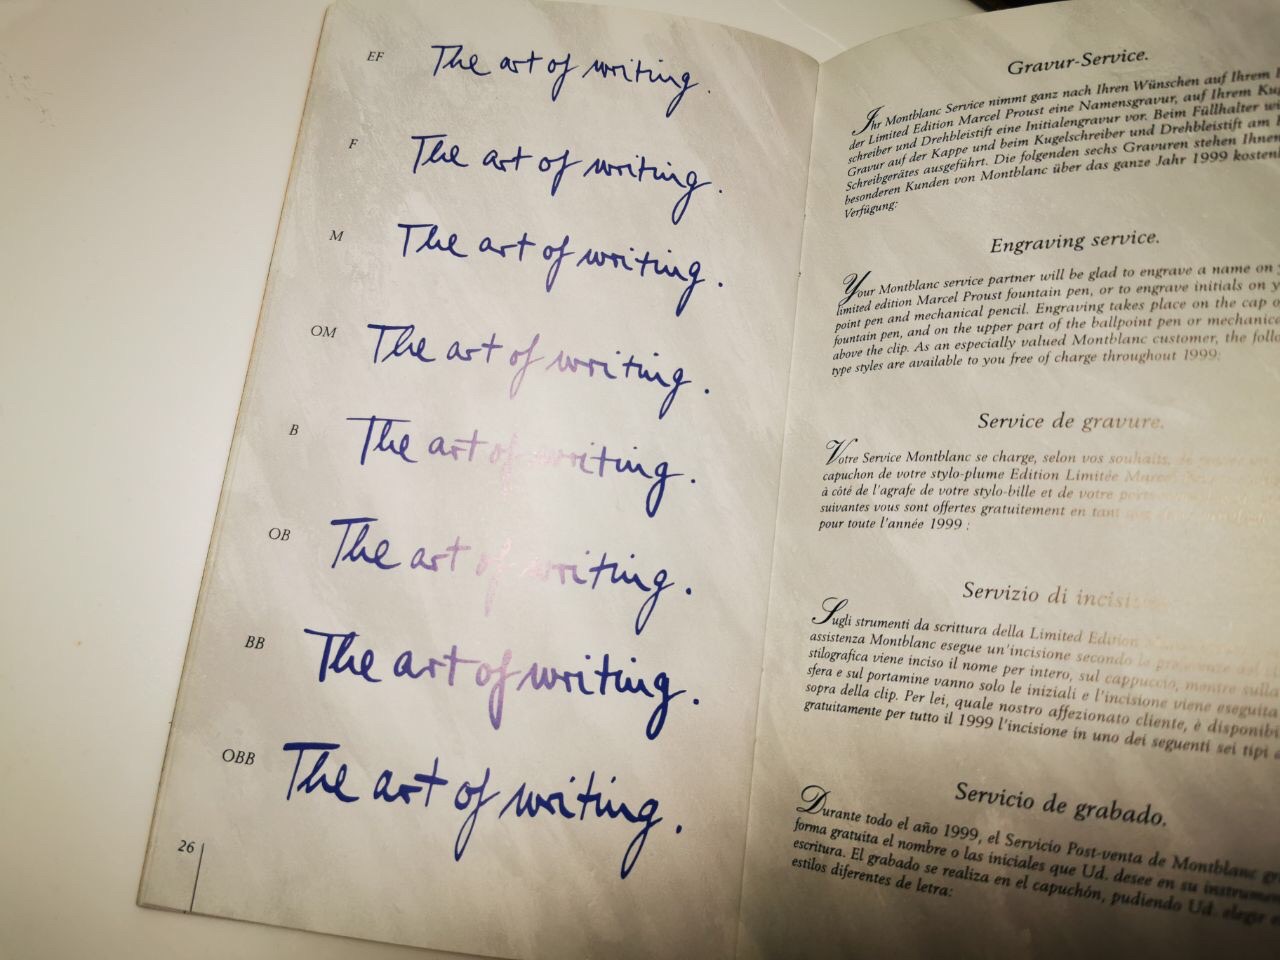 EF The art of writing.
F The art of writing.
M The art of writing.
OM The art of writing.
B The art of writing.
OB The art of writing.
BB The art of writing.
OBB The art of writing.
26
Gravur-Service.
Ihr Montblanc Service nimmt ganz nach Ihren Wünschen auf Ihrem
der Limited Edition Marcel Proust eine Namensgravur, auf Ihrem
schreiber und Drehbleistift eine Initialengravur vor. Beim Füllhalter
Gravur auf der Kappe und beim Kugelschreiber und Drehbleistift am
Schreibgerätes ausgeführt. Die folgenden sechs Gravuren stehen
besonderen Kunden von Montblanc über das ganze Jahr 1999
Verfügung:
Engraving service.
Your Montblanc service partner will be glad to engrave a name on
limited edition Marcel Proust fountain pen, or to engrave initials on
point pen and mechanical pencil. Engraving takes place on the cap
fountain pen, and on the upper part of the ballpoint pen or
above the clip. As an especially valued Montblanc customer, the
type styles are available to you free of charge throughout 1999:
Service de gravure.
Votre Service Montblanc se charge, selon vos souhaits,
capuchon de votre stylo-plume Edition Limitée
à côté de l'agrafe de votre stylo-bille et de votre
suivantes vous sont offertes gratuitement en tant
pour toute l'année 1999 :
Servizio di
Sugli strumenti da scrittura della Limited Edition
assistenza Montblanc esegue un'incisione secondo le preferenze
stilografica viene inciso il nome per intero, sul cappuccio, mentre sulla
sfera e sul portamine vanno solo le iniziali e l'incisione viene eseguita
sopra della clip. Per lei, quale nostro affezionato cliente, è
gratuitamente per tutto il 1999 l'incisione in uno dei seguenti sei tipi
Servicio de grabado.
Durante todo el año 1999, el Servicio Post-venta de Montblanc
forma gratuita el nombre o las iniciales que Ud. desee en su
escritura. El grabado se realiza en el capuchón, pudiendo Ud. elegir
estilos diferentes de letra: